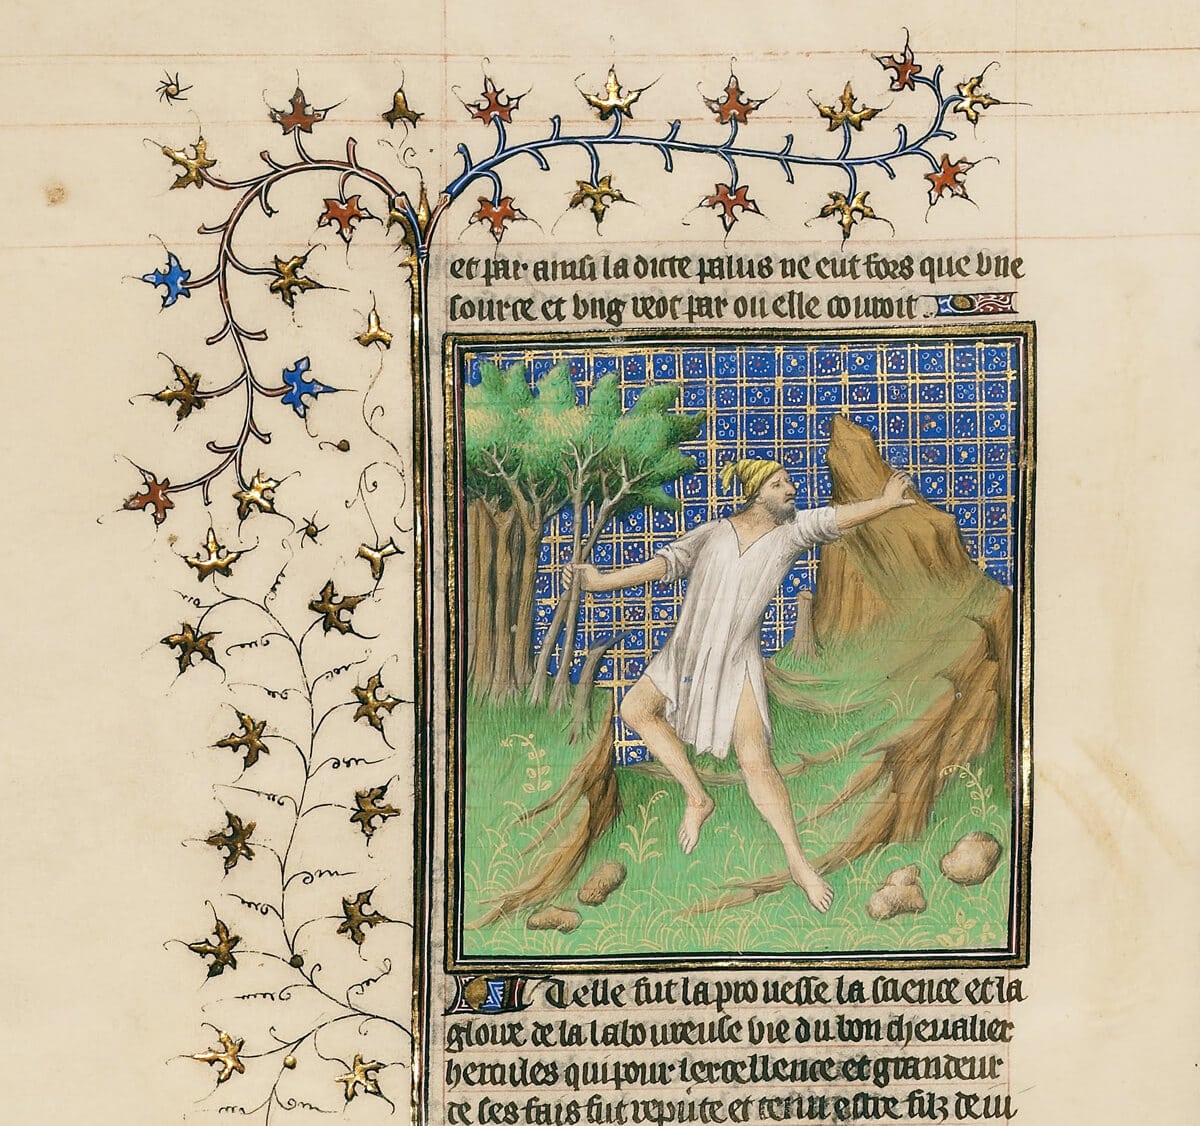 et par ainsi la dicte palus ne eut fors que vne
source et vng ... par ou elle couroit
Telle fut la prouesse la science et la
gloire de la laboureuse vie du bon cheualier
hercules qui pour lexcellence et grandeur
de ses fais fut repute et tenu estre filz de iu